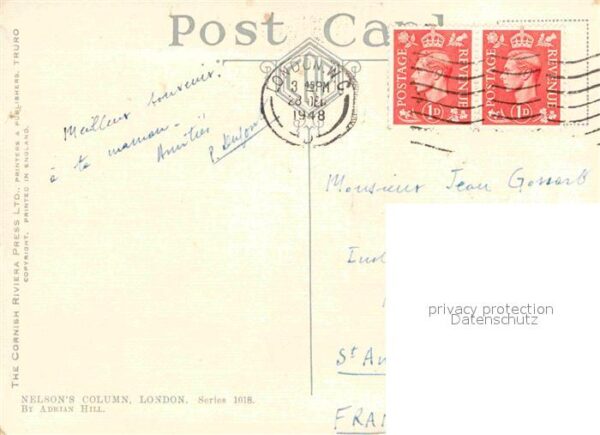 Post Card
POSTAGE REVENUE 1D
POSTAGE REVENUE 1D
LONDON W.C
3 45 PM
28 DEC
1948
Meilleur souvenir
à ta maman.
Amitiés
Monsieur Jean
St
FRA
privacy protection
Datenschutz
THE CORNISH RIVIERA PRESS LTD., PRINTERS & PUBLISHERS, TRURO
COPYRIGHT. PRINTED IN ENGLAND.
NELSON'S COLUMN, LONDON. Series 1018.
BY ADRIAN HILL.